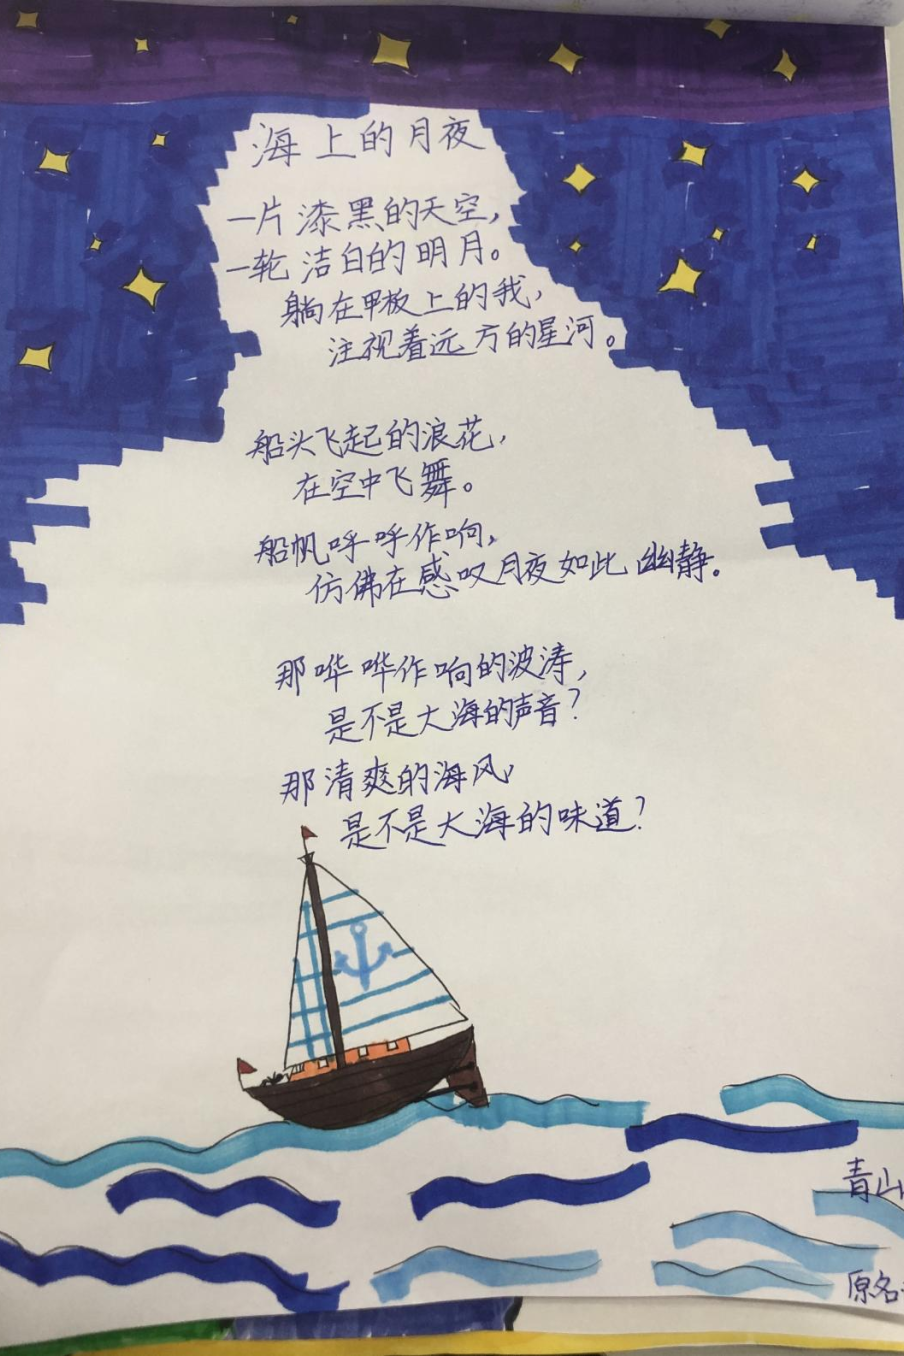 海上的月夜
一片漆黑的天空，
一轮洁白的明月。
躺在甲板上的我，
注视着远方的星河。
船头飞起的浪花，
在空中飞舞。
船帆呼呼作响，
仿佛在感叹月夜如此幽静。
那哗哗作响的波涛，
是不是大海的声音？
那清爽的海风，
是不是大海的味道？
青山
原名